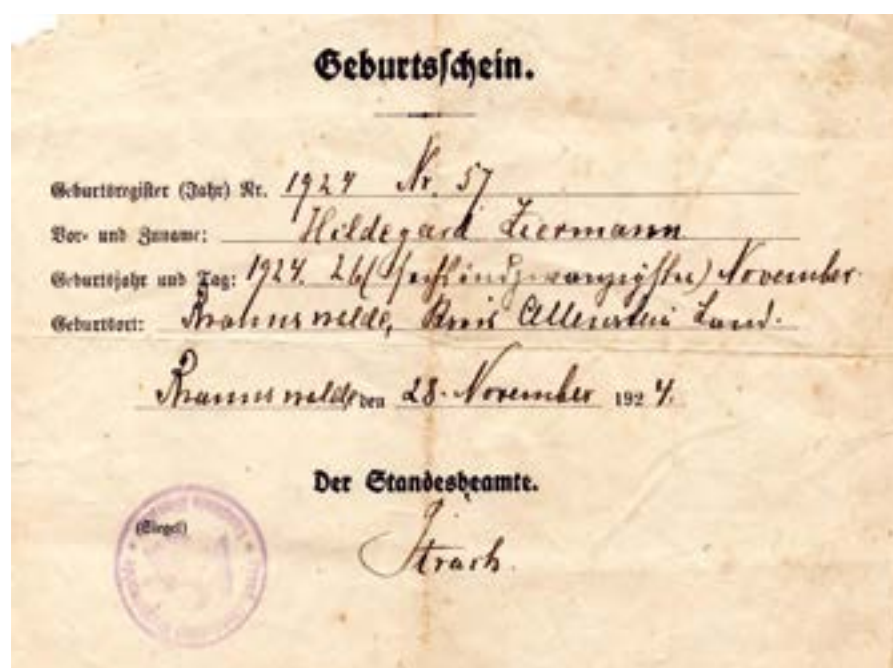 Geburtsschein.
Geburtsregister (Jahr) Nr. 1924 Nr. 57
Vor- und Zuname: Hildegard Liermann
Geburtsjahr und Tag: 1924. 26 (sechsundzwanzigster) November.
Geburtsort: Braunswalde, Kreis Allenstein Land.
Braunswalde, den 28. November 1924.
Der Standesbeamte.
(Siegel)